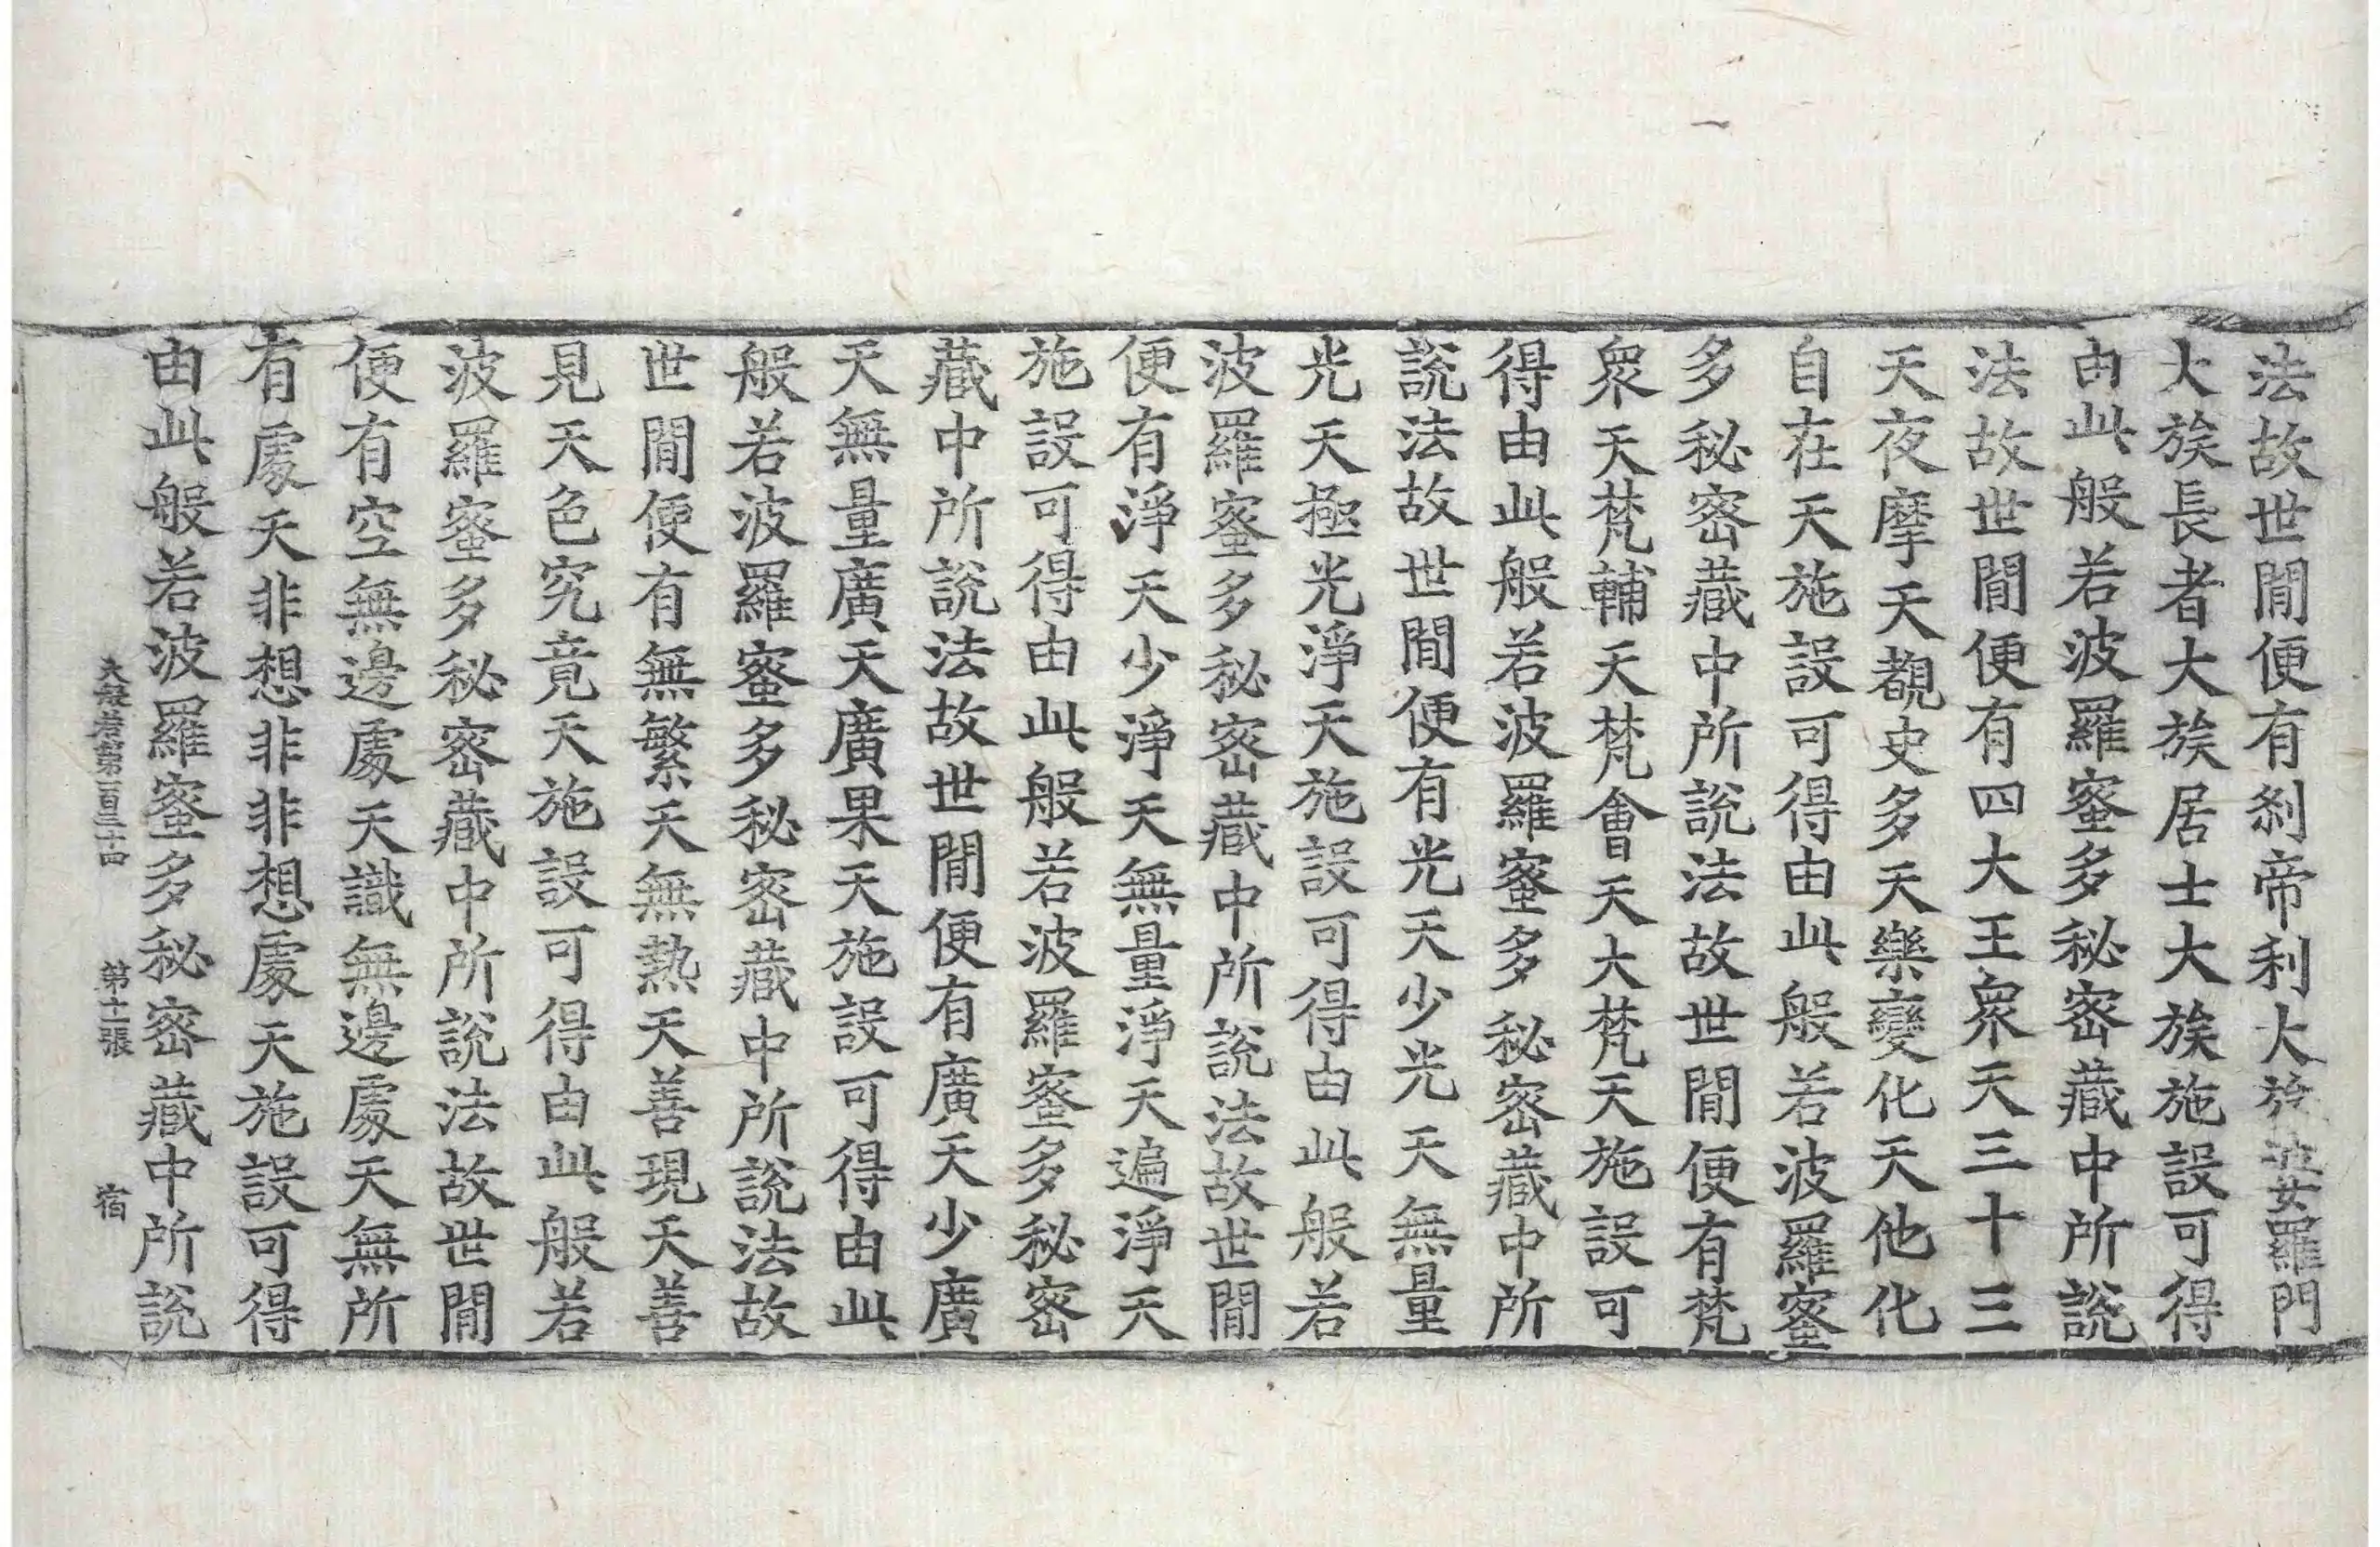 法故世間便有刹帝利大族婆羅門
大族長者大族居士大族施設可得
由此般若波羅蜜多秘密藏中所說
法故世間便有四大王衆天三十三
天夜摩天覩史多天樂變化天他化
自在天施設可得由此般若波羅蜜
多秘密藏中所說法故世間便有梵
衆天梵輔天梵會天大梵天施設可
得由此般若波羅蜜多秘密藏中所
說法故世間便有光天少光天無量
光天極光淨天施設可得由此般若
波羅蜜多秘密藏中所說法故世間
便有淨天少淨天無量淨天遍淨天
施設可得由此般若波羅蜜多秘密
藏中所說法故世間便有廣天少廣
天無量廣天廣果天施設可得由此
般若波羅蜜多秘密藏中所說法故
世間便有無繁天無熱天善現天善
見天色究竟天施設可得由此般若
波羅蜜多秘密藏中所說法故世間
便有空無邊處天識無邊處天無所
有處天非想非非想處天施設可得
由此般若波羅蜜多秘密藏中所說
大般若第一百三十四 第十二張 宿